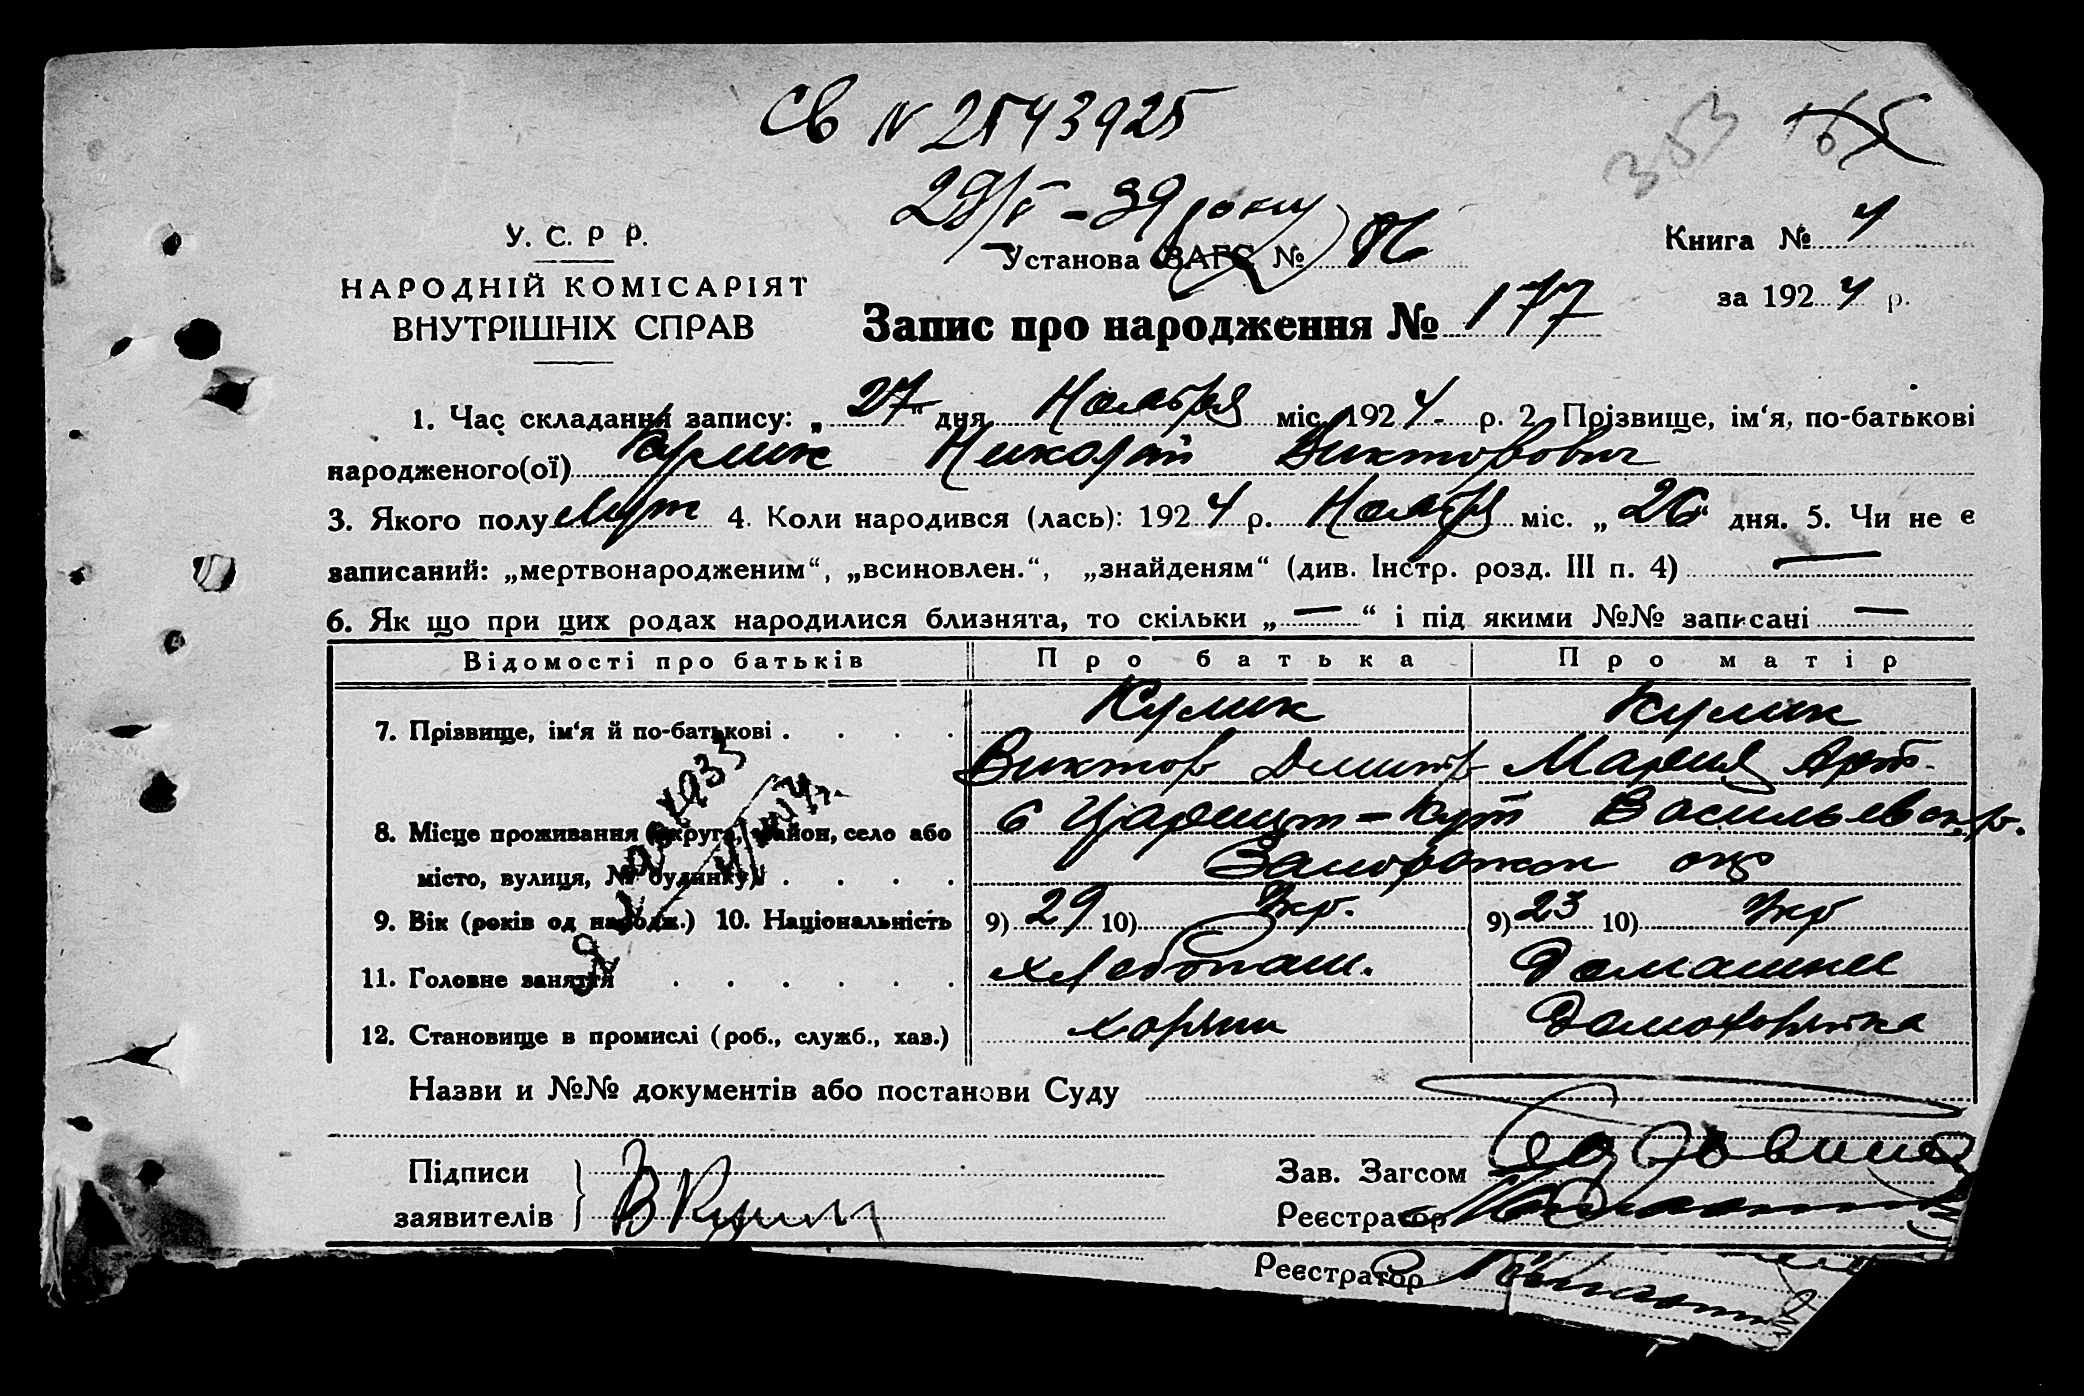 СВ N 2543925
353
165
29/V - 39 року
У. С. Р Р.
Установа ЗАГС №
Книга № 4
НАРОДНІЙ КОМІСАРІЯТ
за 1924 р.
ВНУТРІШНІХ СПРАВ
Запис про народження № 177
1. Час складання запису: „27“ дня Ноября міс. 1924 р. 2. Прізвище, ім‘я, по-батькові
народженого(ої) Кулик Николай Викторович
3. Якого полу Муж 4. Коли народився (лась): 1924 р. Ноября міс. „26 дня. 5. Чи не є
записаний: „мертвонародженим“, „всиновлен.“, „знайденям“ (див. Інстр. розд. III п. 4) —
6. Як що при цих родах народилися близнята, то скільки „—“ і під якими №№ записані —
Відомості про батьків Про батька Про матір
7. Прізвище, ім‘я й по-батькові . . . . Кулик Кулик
Виктор Дмитр Мария Арт.
8. Місце проживання (округа, район, село або с Царицын-Кут Васильевск. р.
місто, вулиця, № будинку) . . . . Запорожск окр
9. Вік (років од народж.) 10. Національність 9) 29 10) Укр. 9) 23 10) Укр
11. Головне заняття . . . . . . хлебопаш. Домашнее
12. Становище в промислі (роб., служб., хаз.) хозяин Домохозяйка
Назви и №№ документів або постанови Суду
Підписи
Зав. Загсом
заявителів В Кулик
Реєстратор
Реєстратор